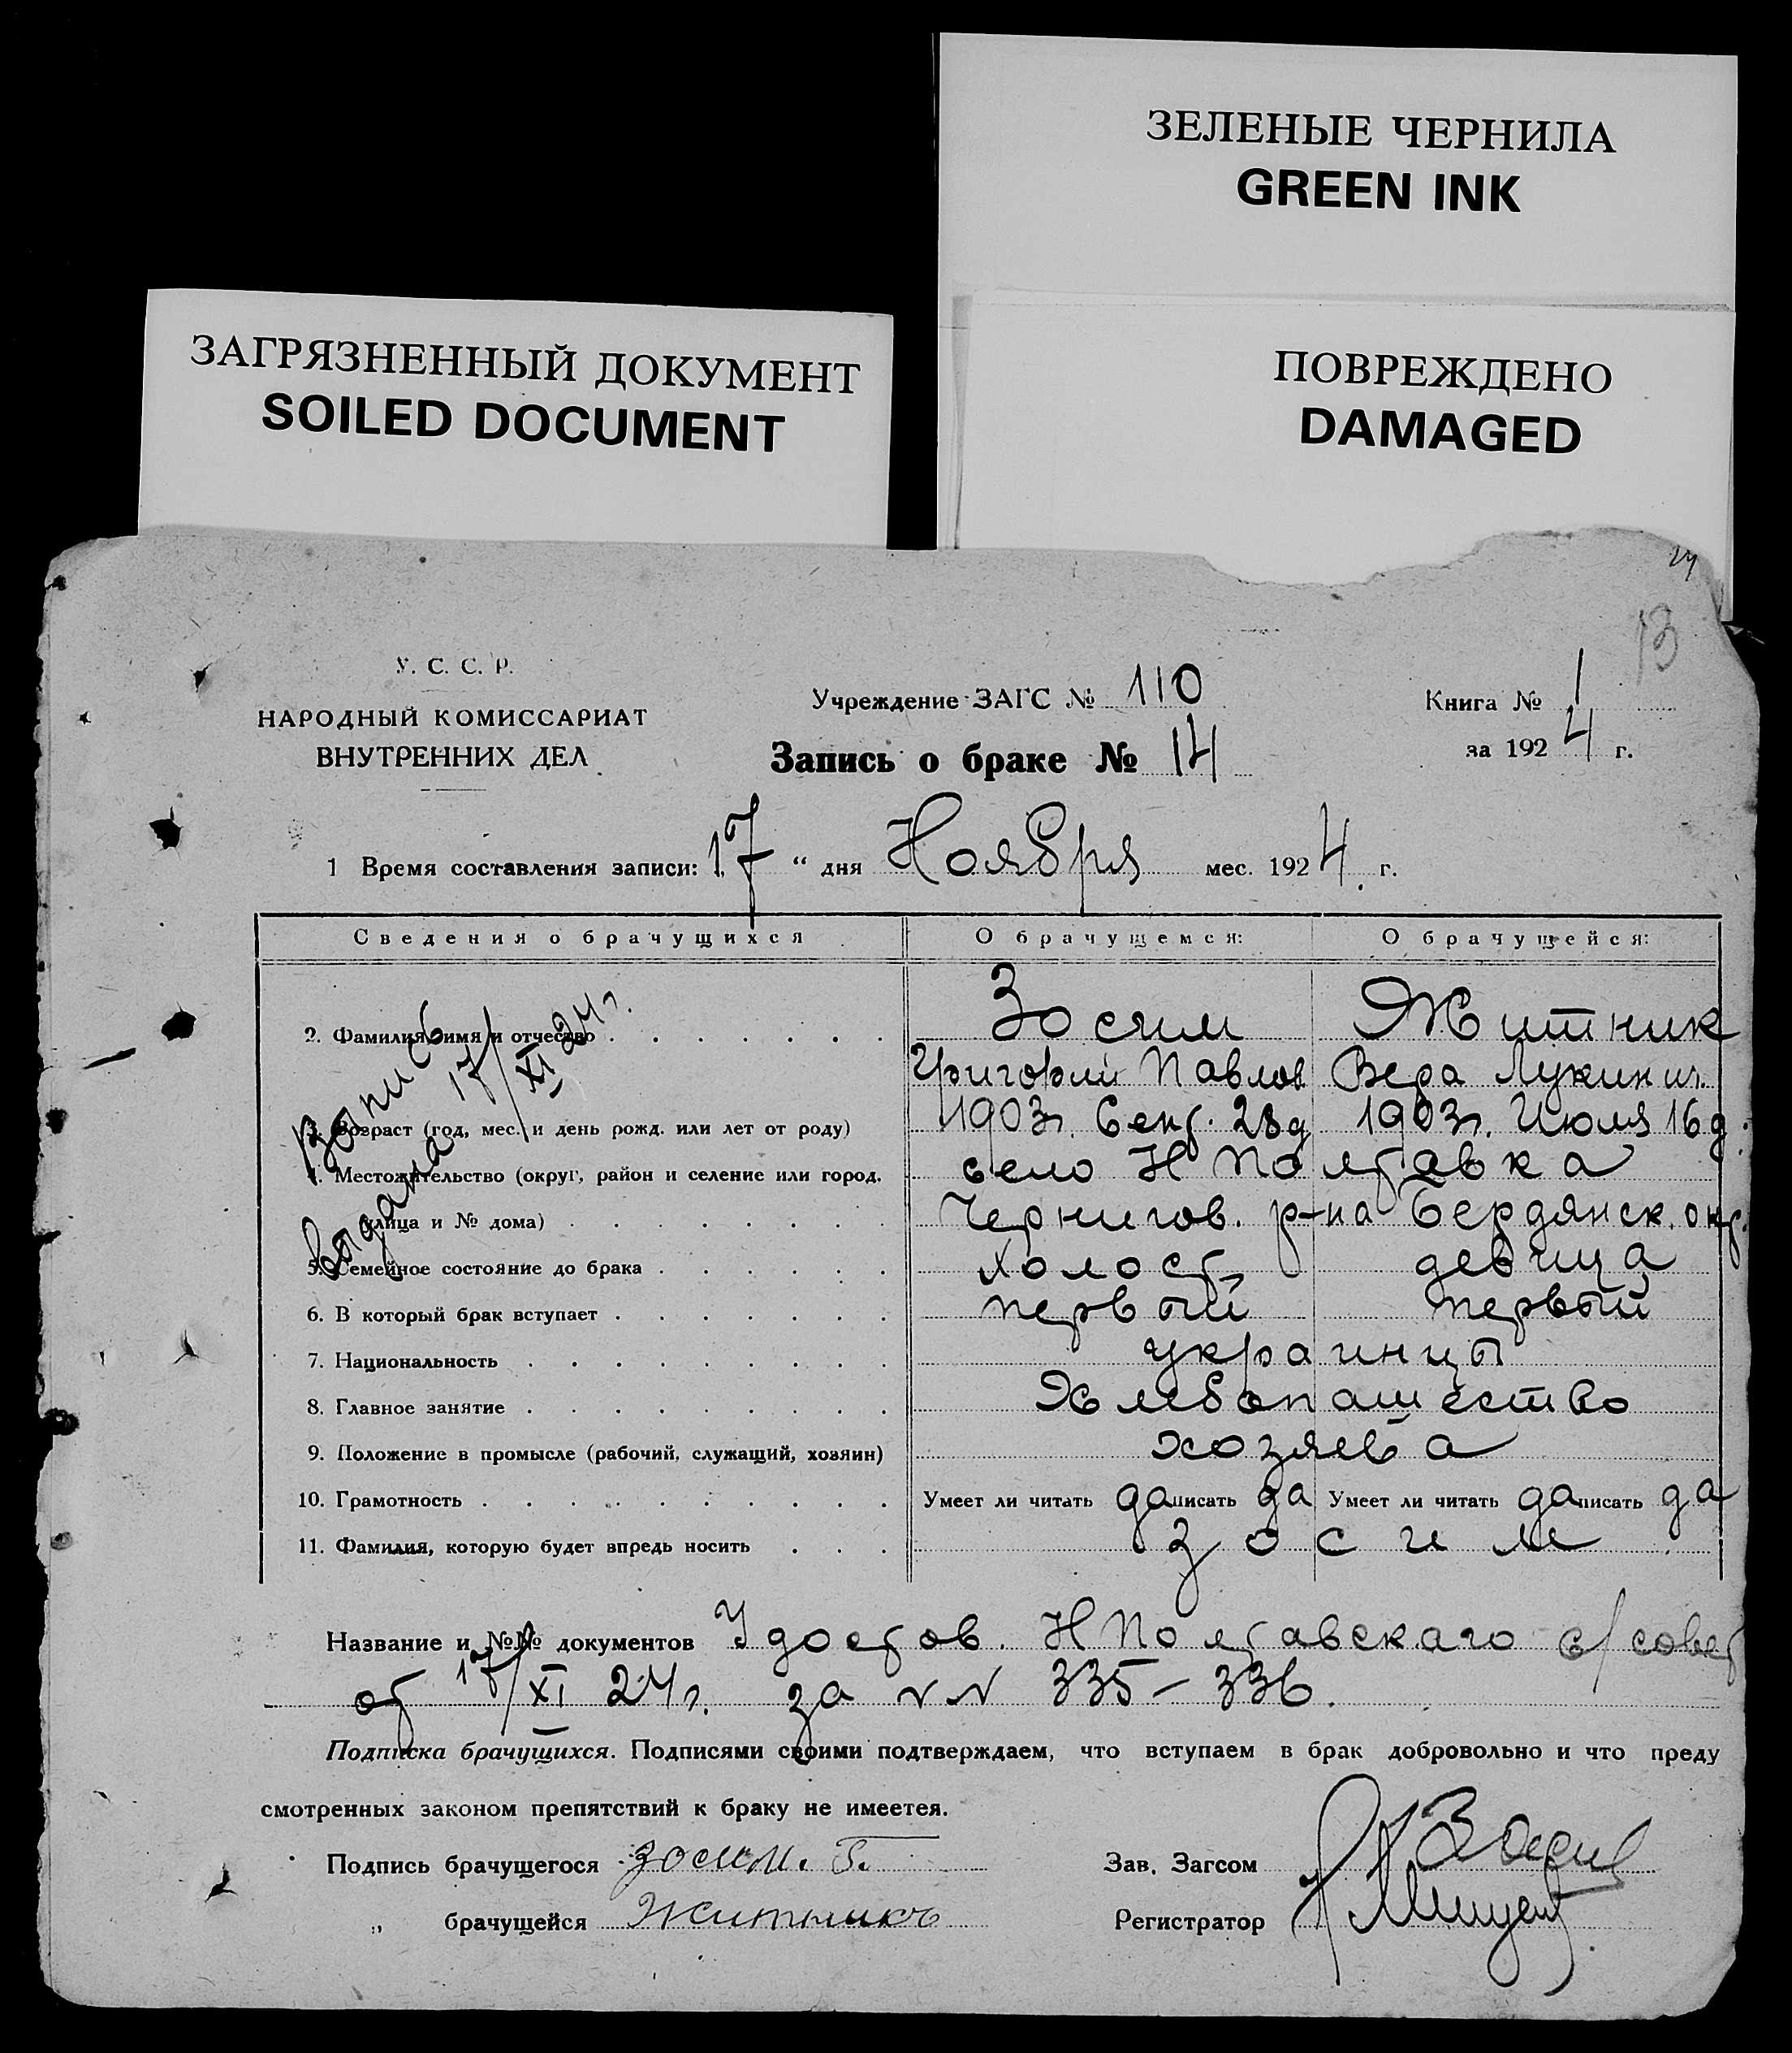 ЗЕЛЕНЫЕ ЧЕРНИЛА
GREEN INK
ЗАГРЯЗНЕННЫЙ ДОКУМЕНТ
SOILED DOCUMENT
ПОВРЕЖДЕНО
DAMAGED
24
13
У. С. С. Р.
НАРОДНЫЙ КОМИССАРИАТ
ВНУТРЕННИХ ДЕЛ
Учреждение ЗАГС № 110
Запись о браке № 14
Книга № 1
за 1924 г.
1 Время составления записи: 17 “ дня Ноября мес. 1924. г.
Сведения о брачущихся О брачущемся: О брачущейся:
2. Фамилия, имя и отчество Зосим Житник
Григорий Павлов Вера Лукинич.
3. Возраст (год, мес. и день рожд. или лет от роду) 1903г. Сент. 28д 1903г. Июля 16д.
4. Местожительство (округ, район и селение или город, село Н Полтавка
улица и № дома) Чернигов. р-на Бердянск. окр.
5. Семейное состояние до брака холост девица
6. В который брак вступает первый первый
7. Национальность украинцы
8. Главное занятие Хлебопашество
9. Положение в промысле (рабочий, служащий, хозяин) хозяева
10. Грамотность Умеет ли читать да писать да Умеет ли читать да писать да
11. Фамилия, которую будет впредь носить Зосим
выдана 17/XI 24г.
Название и №№ документов Удостов. Н Полтавскаго с/совет
от 17/XI 24г. за №№ 335-336.
Подписка брачущихся. Подписями своими подтверждаем, что вступаем в брак добровольно и что преду
смотренных законом препятствий к браку не имеетея.
Подпись брачущегося Зосим. Г.
Зав. Загсом
„ брачущейся Житникъ
Регистратор